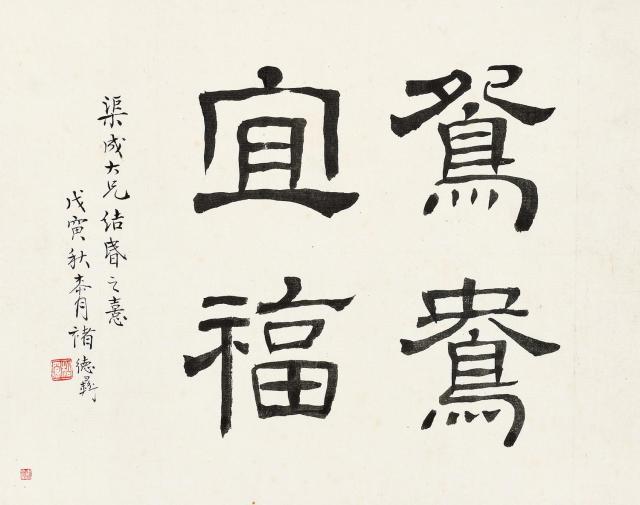 鴛鴦
宜福
渠成大兄結昏之憙
戊寅秋桼月褚德彝